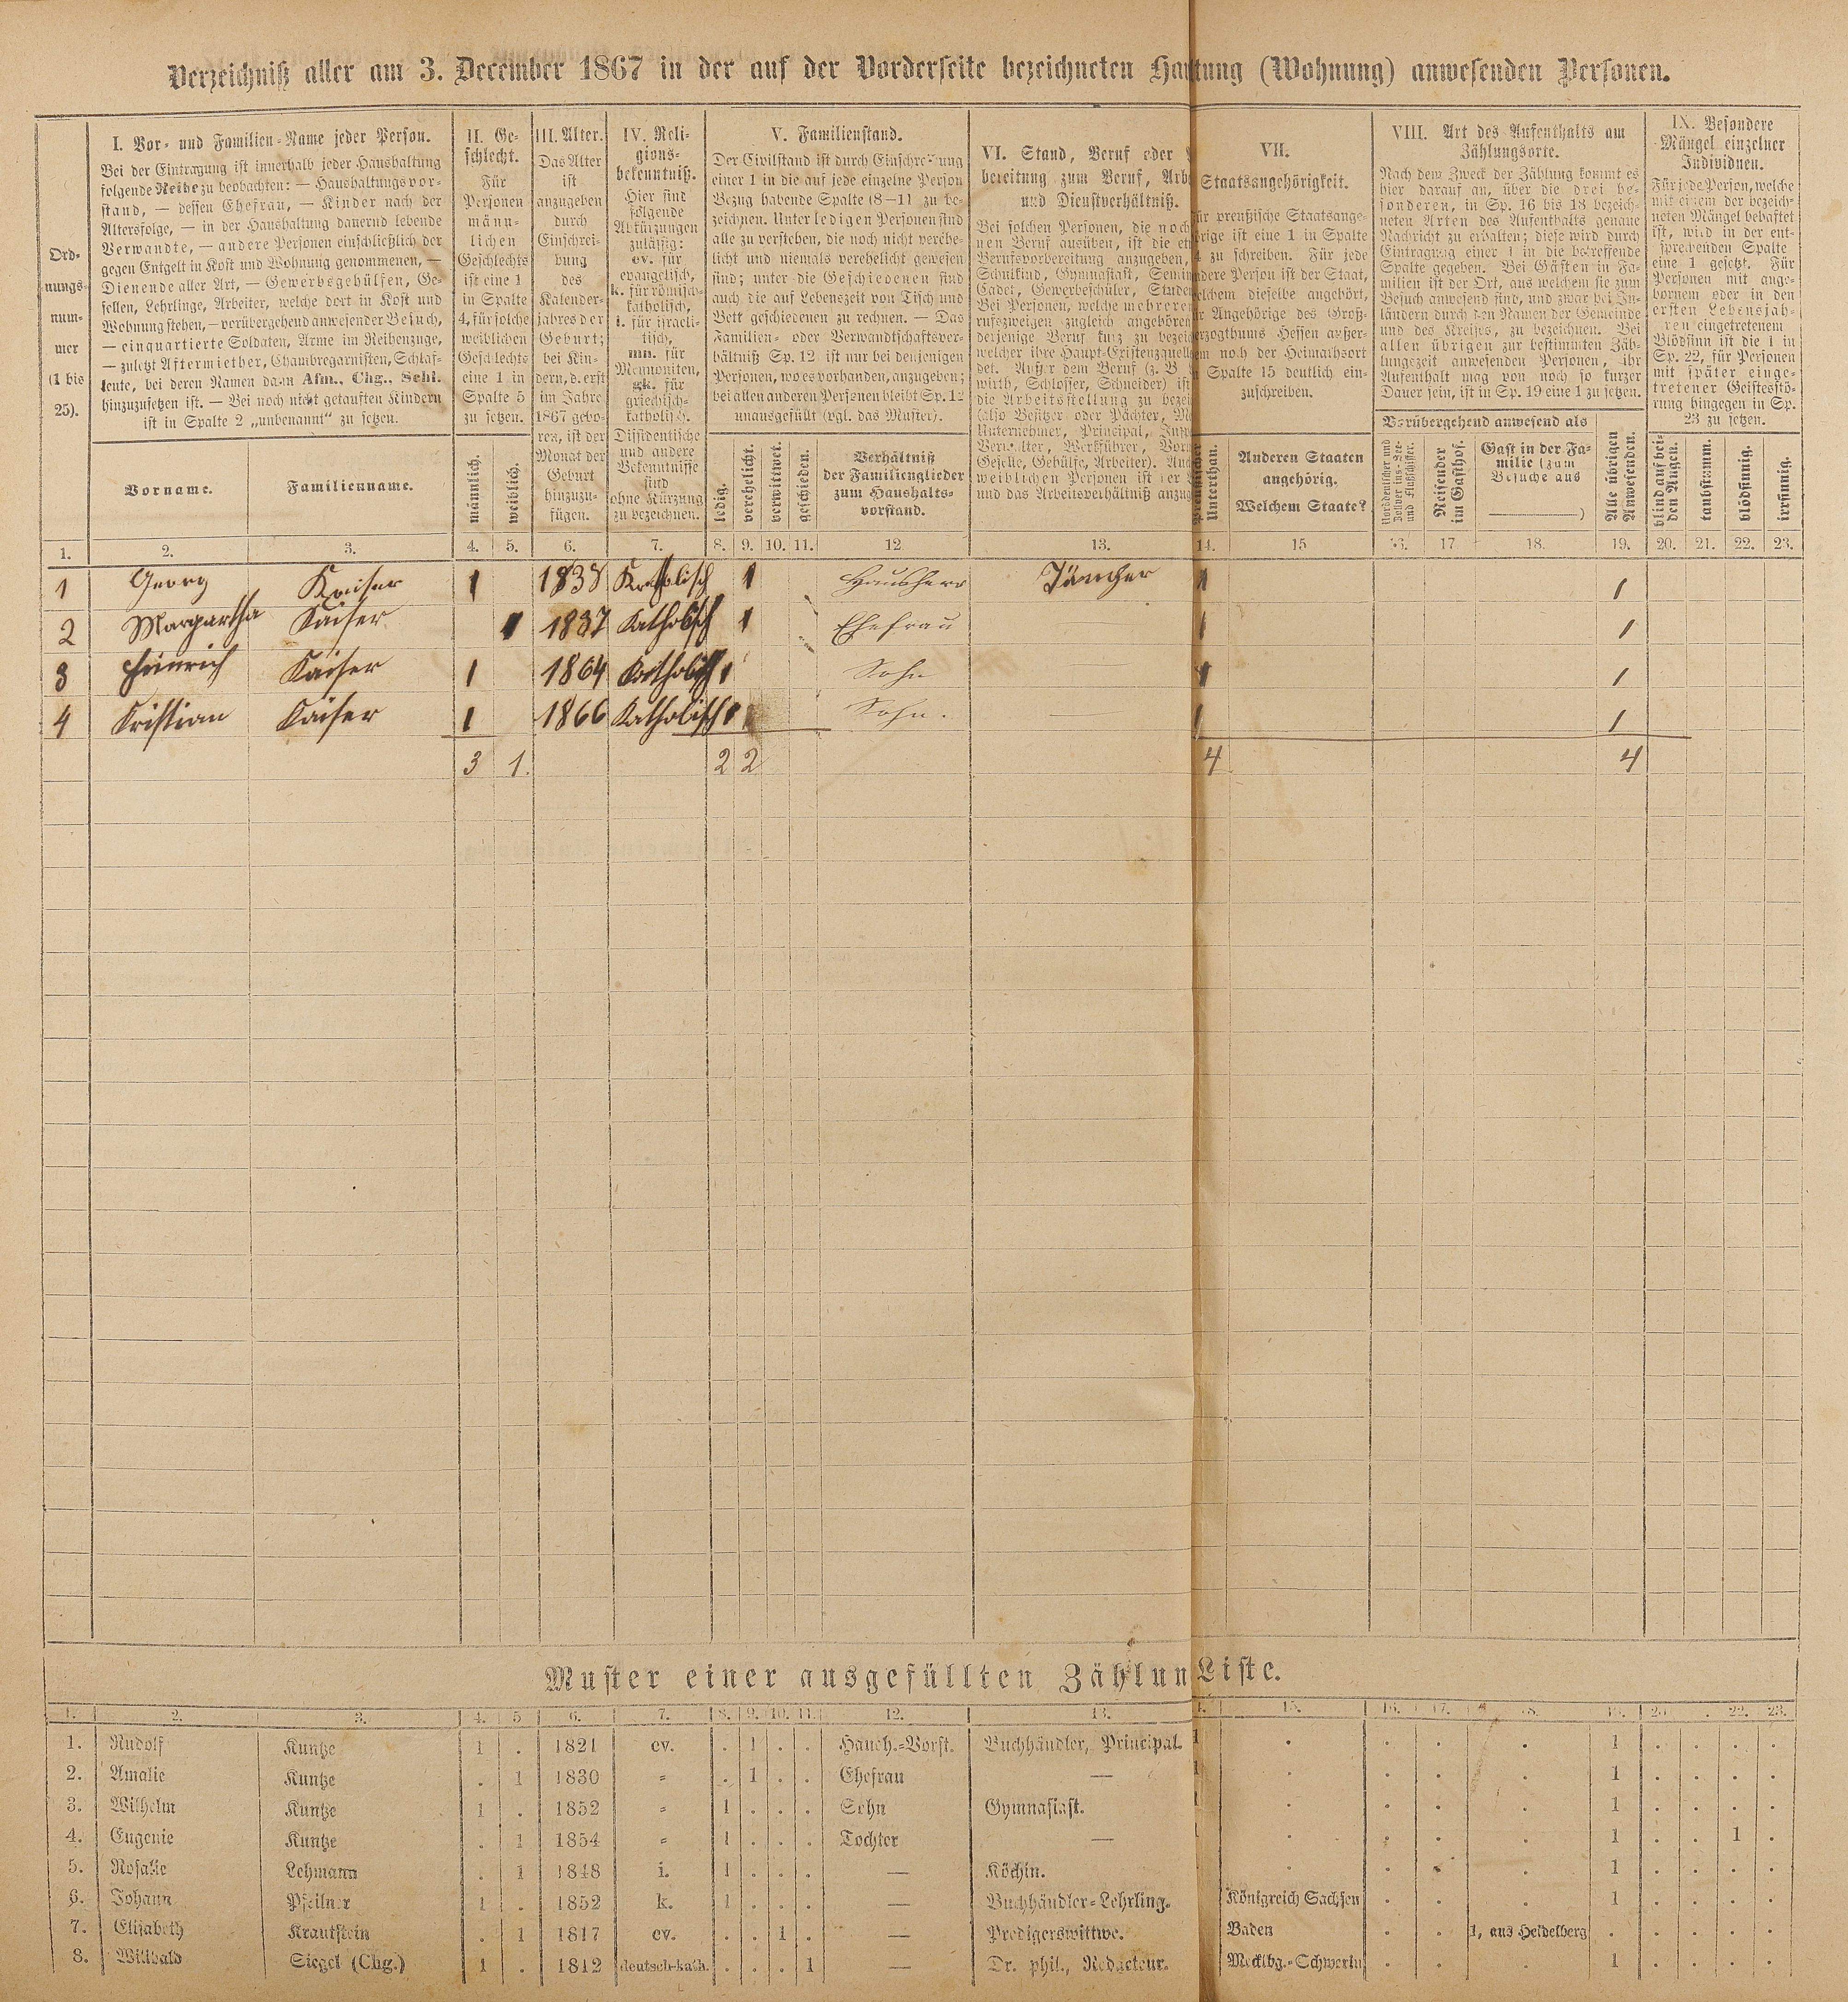 Verzeichniß aller am 3. December 1867 in der auf der Vorderseite bezeichneten Haltung (Wohnung) anwesenden Personen.
Ord-
nungs-
num-
mer
(1 bis
25).
I. Vor- und Familien-Name jeder Person.
Bei der Eintragung ist innerhalb jeder Haushaltung
folgende Reihe zu beobachten: — Haushaltungsvor-
stand, — dessen Ehefrau, — Kinder nach der
Altersfolge, — in der Haushaltung dauernd lebende
Verwandte, — andere Personen einschließlich der
gegen Entgelt in Kost und Wohnung genommenen, —
Dienende aller Art, — Gewerbsgehülfen, Ge-
sellen, Lehrlinge, Arbeiter, welche dort in Kost und
Wohnung stehen, — vorübergehend anwesender Besuch,
— einquartierte Soldaten, Arme im Reihenzuge,
— zuletzt Aftermiether, Chambregarnisten, Schlaf-
leute, bei deren Namen dann Afm., Chg., Schl.
hinzuzusetzen ist. — Bei noch nicht getauften Kindern
ist in Spalte 2 „unbenannt“ zu setzen.
Vorname.
Familienname.
II. Ge-
schlecht.
Für
Personen
männ-
lichen
Geschlechts
ist eine 1
in Spalte
4, für solche
weiblichen
Geschlechts
eine 1 in
Spalte 5
zu setzen.
männlich.
weiblich.
III. Alter.
Das Alter
ist
anzugeben
durch
Einschrei-
bung
des
Kalender-
jahres der
Geburt;
bei Kin-
dern, d. erst
im Jahre
1867 gebo-
ren, ist der
Monat der
Geburt
hinzuzu-
fügen.
IV. Reli-
gions-
bekenntniß.
Hier sind
folgende
Abkürzungen
zulässig:
ev. für
evangelisch,
k. für römisch-
katholisch,
i. für israeli-
tisch,
mn. für
Mennoniten,
gk. für
griechisch-
katholisch.
Dissidentische
und andere
Bekenntnisse
sind
ohne Kürzung
zu bezeichnen.
V. Familienstand.
Der Civilstand ist durch Einschreibung
einer 1 in die auf jede einzelne Person
Bezug habende Spalte (8—11 zu be-
zeichnen. Unter ledigen Personen sind
alle zu verstehen, die noch nicht verehe-
licht und niemals verehelicht gewesen
sind; unter die Geschiedenen sind
auch die auf Lebenszeit von Tisch und
Bett geschiedenen zu rechnen. — Das
Familien- oder Verwandtschaftsver-
hältniß Sp. 12 ist nur bei denjenigen
Personen, wo es vorhanden, anzugeben;
bei allen anderen Personen bleibt Sp. 12
unausgefüllt (vgl. das Muster).
ledig.
verehelicht.
verwittwet.
geschieden.
Verhältniß
der Familienglieder
zum Haushalts-
vorstand.
VI. Stand, Beruf oder
bereitung zum Beruf, Arb
und Dienstverhältniß.
Bei solchen Personen, die noch
nen Beruf ausüben, ist die et
Berufsvorbereitung anzugeben,
Schulkind, Gymnasiast, Semin
Cadet, Gewerbeschüler, Studen
Bei Personen, welche mehrere
rufszweigen zugleich angehören
derjenige Beruf kurz zu bezei
welcher ihre Haupt-Existenzquell
det. Außer dem Beruf (z. B.
wirth, Schlosser, Schneider) ist
die Arbeitsstellung zu bezei
(also Besitzer oder Pächter, M
Unternehmer, Principal, Insp
Verwalter, Werkführer, Vor
Geselle, Gehülfe, Arbeiter). Auch
weiblichen Personen ist der
und das Arbeitsverhältniß anzug
VII.
Staatsangehörigkeit.
ür preußische Staatsange-
rige ist eine 1 in Spalte
4 zu schreiben. Für jede
ndere Person ist der Staat,
elchem dieselbe angehört,
ür Angehörige des Groß-
erzogthums Hessen außer-
em noch der Heimathsort
Spalte 15 deutlich ein-
zuschreiben.
Preußischer
Unterthan.
Anderen Staaten
angehörig.
Welchem Staate?
VIII. Art des Aufenthalts am
Zählungsorte.
Nach dem Zweck der Zählung kommt es
hier darauf an, über die drei be-
sonderen, in Sp. 16 bis 18 bezeich-
neten Arten des Aufenthalts genaue
Nachricht zu erhalten; diese wird durch
Eintragung einer 1 in die betreffende
Spalte gegeben. Bei Gästen in Fa-
milien ist der Ort, aus welchem sie zum
Besuch anwesend sind, und zwar bei In-
ländern durch den Namen der Gemeinde
und des Kreises, zu bezeichnen. Bei
allen übrigen zur bestimmten Zäh-
lungszeit anwesenden Personen, ihr
Aufenthalt mag von noch so kurzer
Dauer sein, ist in Sp. 19 eine 1 zu setzen.
Vorübergehend anwesend als
Norddeutscher und
Zollvereins-See-
und Flußschiffer.
Reisender
im Gasthof.
Gast in der Fa-
milie (zum
Besuche aus
)
Alle übrigen
Anwesenden.
IX. Besondere
Mängel einzelner
Individuen.
Für jede Person, welche
mit einem der bezeich-
neten Mängel behaftet
ist, wird in der ent-
sprechenden Spalte
eine 1 gesetzt. Für
Personen mit ange-
bornem oder in den
ersten Lebensjah-
ren eingetretenem
Blödsinn ist die 1 in
Sp. 22, für Personen
mit später einge-
tretener Geistesstö-
rung hingegen in Sp.
23 zu setzen.
blind auf bei-
den Augen.
taubstumm.
blödsinnig.
irrsinnig.
1. 2. 3. 4. 5. 6. 7. 8. 9. 10. 11. 12 13. 14. 15 16. 17 18. 19. 20. 21. 22. 23.
1 Georg Kaiser 1 1838 Katholisch 1 Hausherr 1 1
2 Margartha Kaiser 1 1837 Katholisch 1 Ehefrau 1 1
3 Heinrich Kaiser 1 1864 Katholisch 1 Sohn 1 1
4 Kristian Kaiser 1 1866 Katholisch 1 Sohn. — 1 1
3 1. 2 2 4 4
Muster einer ausgefüllten Zählun Liste.
1. 2. 3. 4. 5 6. 7. 8. 9. 10. 11. 12. 13. 15. 16. 17. 18. 19. 20 22. 23.
1. Rudolf Kuntze 1 . 1821 ev. . 1 . . Haush.-Vorst. Buchhändler, Principal. 1 . . . . 1 . . . .
2. Amalie Kuntze . 1 1830 = . 1 . . Ehefrau — 1 . . . . 1 . . . .
3. Wilhelm Kuntze 1 . 1852 = 1 . . . Sohn Gymnasiast. 1 . . . . 1 . . . .
4. Eugenie Kuntze . 1 1854 = 1 . . . Tochter — 1 . . . . 1 . . 1 .
5. Rosalie Lehmann . 1 1848 i. 1 . . . — Köchin. . . . . 1 . . . .
6. Johann Pfeilner 1 . 1852 k. 1 . . . — Buchhändler-Lehrling. Königreich Sachsen . . . 1 . . . .
7. Elisabeth Krautstein . 1 1817 ev. . . 1 . — Predigerswittwe. Baden . . 1, aus Heidelberg . . . . .
8. Willbald Siegel (Chg.) 1 . 1812 deutsch-kath. . . . 1 — Dr. phil., Redacteur. Mecklbg.-Schwerin . . . 1 . . . .